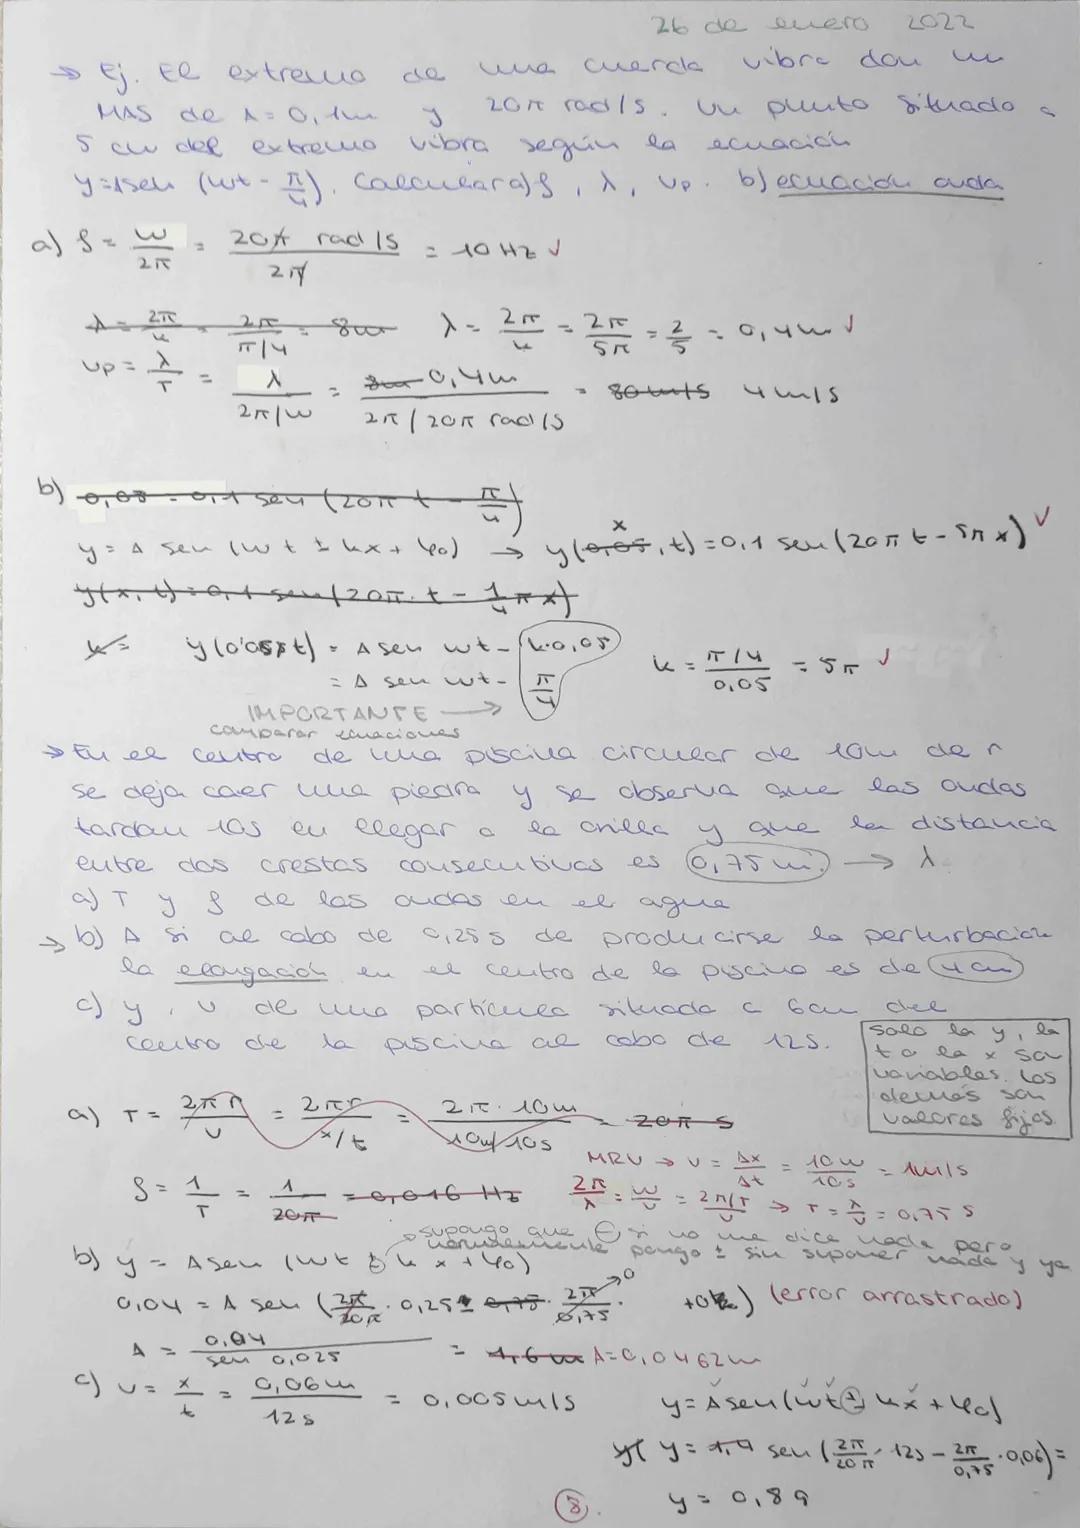 26 de enero 2022
→ Ej. El extremo de una cuerda vibra con un
MAS de A = 0,1m y 20π rad/s. Un punto situado a
5 cm del extremo vibra según la ecuación
y=1sen (wt - π/4). Calcular a) f, λ, vp. b) ecuación onda
a) f = w/2π = 20π rad/s / 2π = 10 Hz ✓
λ = 2π/k = 2π/π/4 = 8m λ = 2π/k = 2π/5π = 2/5 = 0,4m ✓
vp = λ/T = λ / 2π/w = 8m 0,4m / 2π/20π rad/s = 80m/s 4m/s
b) 0,05 = 0,1 sen (20π t - π/4)
y = A sen (wt ± kx + φ0) → y(0,05, t) = 0,1 sen (20π t - 5π x) ✓
x
y(x,t) = 0,1 sen (20π·t - 1/4 π x)
k = y(0'05, t) = A sen wt - k·0,05 k = π/4 / 0,05 = 5π ✓
= A sen wt - π/4
IMPORTANTE →
comparar ecuaciones
→ En el centro de una piscina circular de 10m de r
se deja caer una piedra y se observa que las ondas
tardan 10s en llegar a la orilla y que la distancia
entre dos crestas consecutivas es 0,75 m. → λ
a) T y f de las ondas en el agua
→ b) A si al cabo de 0,25 s de producirse la perturbación
la elongación en el centro de la piscina es de 4 cm
c) y, v de una partícula situada a 6cm del
centro de la piscina al cabo de 12s.
solo la y, la
t o la x son
variables. Los
demás son
valores fijos.
a) T = 2πr/v = 2πr / x/t = 2π·10m / 10m/10s = 20π s
MRU → v = Δx/Δt = 10m/10s = 1m/s
f = 1/T = 1/20π = 0,016 Hz 2π/λ = w/v = 2π/T / v → T = λ/v = 0,75 s
→ supongo que ⊖ si no me dice nada pero
normalmente pongo ± sin suponer nada y ya
b) y = A sen (wt ± kx + φ0)
0,04 = A sen (2π/20π · 0,25 ± 0,75 · 2π/0,75 · 0 + 0) (error arrastrado)
A = 0,04 / sen 0,025 = 1,6 m A=0,0462m
c) v = x/t = 0,06m / 12s = 0,005m/s y = A sen (wt ± kx + φ0)
y( y = 1,9 sen (2π/20π · 12s - 2π/0,75 · 0,06) =
8. y = 0,89